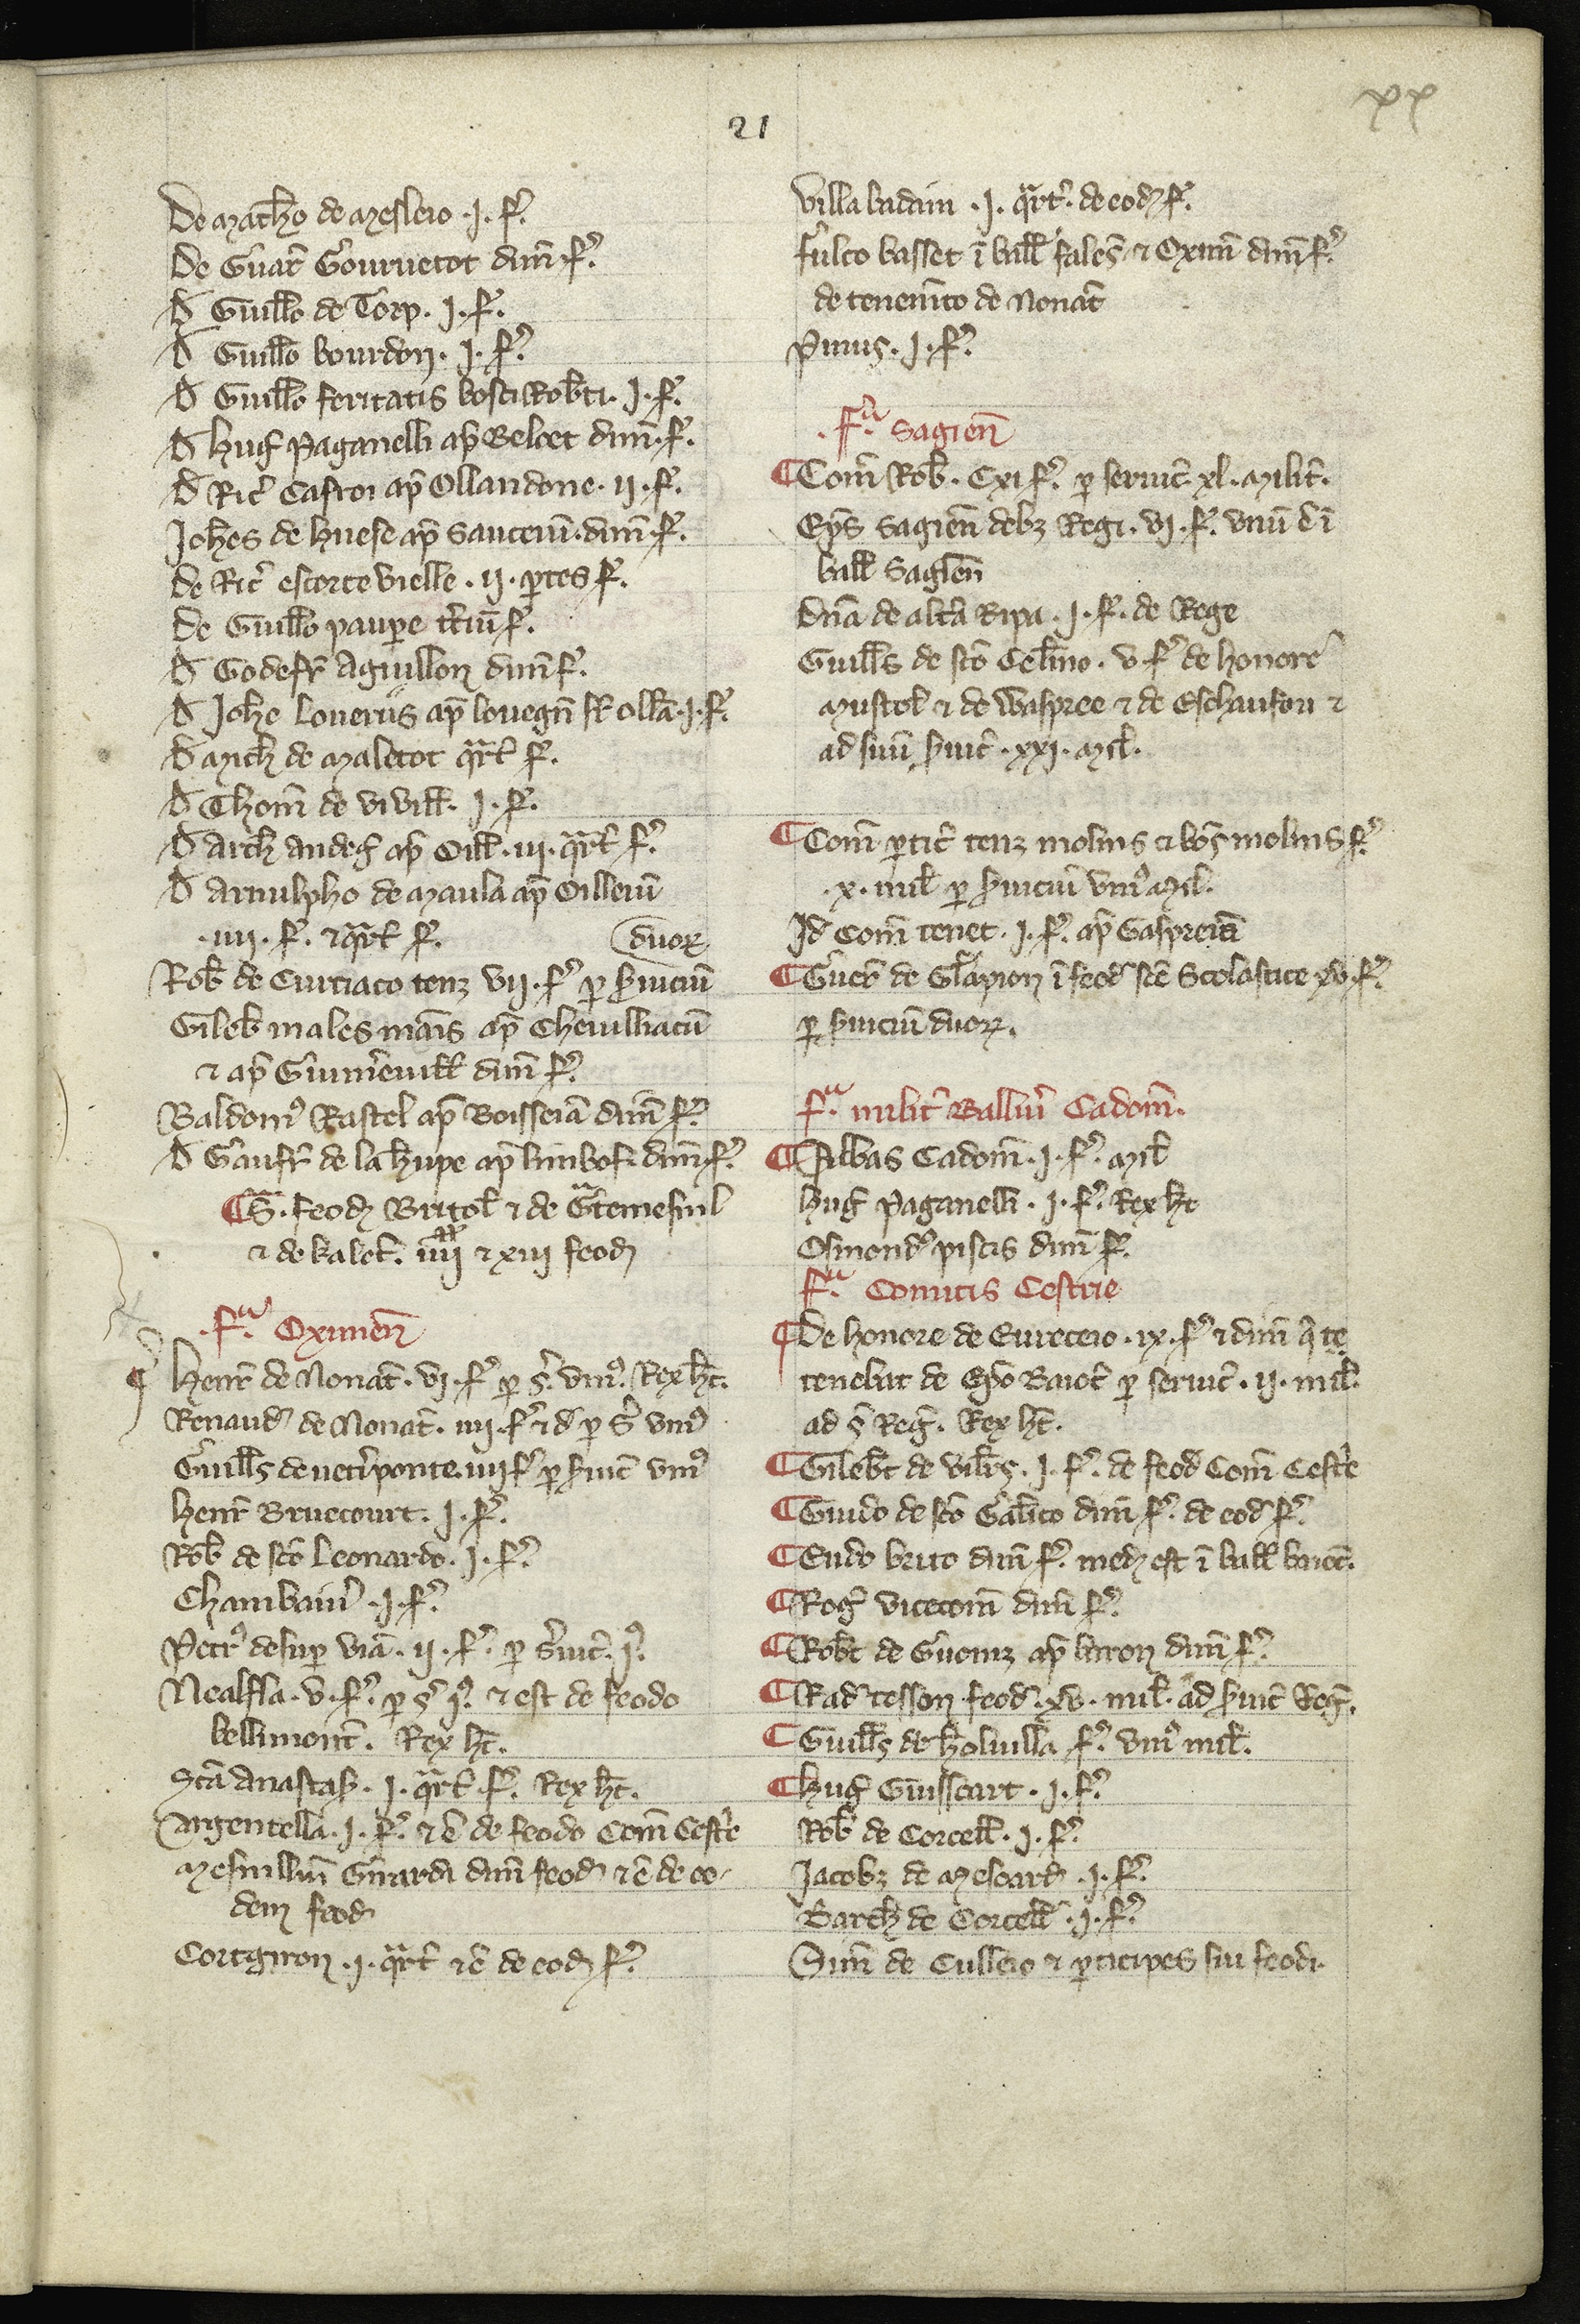 xx
21
De Matho de Mesleio .I. f'.
De Guar̄ Gouruetot dim̄. f'.
D Guillo de Torp. I. f'.
D Guillo bourdon. I. f'.
D Guillo feritatis bosci Robti. I. f'.
D hug Paganelli ap̄ Beloet dim̄. f'.
D Ric' Castoi ap̄ Ollandone. II. f'.
Johes de huese ap̄ Sauceiū. dim̄. f'.
De Ric' escorte vielle. II. ptes f'.
De Guillo paupe t'ciū f'.
D Godefr̄ Aguillon dim̄ f'.
D Johe louerus ap̄ louegn̄ sr ollā. I. f'.
D Mich de Maletot qart f'.
D Thom̄ de viuill. I. f'.
D Arch andeg ap̄ Oill. III. qart f'.
D Arnulpho de Maula ap̄ Oilleiū
.IIII. f'. et qart f'.
duoꝝ
Rob de Curciaco tenꝫ VII. f' p suiciū
Gileb males mains ap̄ Cheuilliacū
et ap̄ Guim'euill dim̄ f'.
Baldoin' Rastel ap̄ Boisseiā dim̄ f'.
D Gaufr̄ de la hupe ap̄ limbof. dim̄. f'.
¶ Sᵃ. feod Britol et de Gᵃtemesnil
et de kalet. IIII et XIII feod
.fᵃ. Oximen̄
¶ henr̄ de Nonat. VI. f' p s'. vni'. Rex ht.
Renaud de Nonat. IIII. f' et d p s' vni'
Guills de ueti ponte. IIII f' p suic' vni'
henr̄ Bruecourt. I. f'.
Rob de sco Leonardo. I. f'.
Chambain' .I. f'.
Petr' desup viā. II. f'. p suic'. I'.
Nealfla. V. f'. p s' I'. et est de feodo
bellimont. Rex ht.
Scā Anastasḥ. I. qart. f'. Rex ht.
Argentella. I. f'. et ē de feodo Com̄ Cest'e
Mesnilliū Girardi dim̄ feod et ē de eo
dem feod
Cortgiron .I. qart et ē de eod f'.
villa badain .I. qart'. de eod f'.
fulco basset ī ball' fales et Oxim̄ dim̄ f'.
de tenemto de Nonat
Pinus. I. f'.
.fᵃ. Sagien̄
¶ Com̄ Rob. CXI f'. p seruic'. xl. milit.
Ep̄s Sagien̄ debꝫ Regi. VI. f'. vnū d ī
ball Sagien̄
Dn̄a de alta Ripa. I. f'. de Rege
Guills de sco Celino. V. f' de honore
Mustol et de Waspree et de Eschaufou et
ad suū suic'. XXI. mil.
¶ Com̄ ptic' tenꝫ molins et bos molins f'.
.X. mil p suiciū vni' mil.
Id Com̄ tenet. I. f'. ap̄ Gaspreiā
¶ Guer̄ de Glapion ī feod scē Scolastice XV. f'.
p suiciū duoꝝ.
fᵃ. milit Balliu' Cadom̄.
¶ Abbas Cadom̄. I. f'. mil
hug Paganelli. I. f'. Rex ht
Osmond' piscis dim̄ f'.
fᵃ. Comitis Cestrie
¶ De honore de Eureceio. IX. f' et dim̄ q te
tenebat de Epō Baioc' p seruic'. II. mil.
ad s Reg'. Rex ht.
¶ Gilebt de vilers. I. f'. de feod Com̄ Cest'e
¶ Guido de sco Galico dim̄ f'. de eod f'.
¶ Eudo brito dim̄ f'. med est ī ball baioc'.
¶ Rog' vicecom̄ dim̄ f'.
¶ Robt de Guoniz ap̄ biron dim̄ f'.
¶ Rad' tesson feod. XV. mil. ad suic' Reg'.
¶ Guills de Soliuilla f'. vni' mil.
¶ hug Guiscart. I. f'.
Rob de Corcell. I. f'.
Jacobꝫ de Mesoard. I. f'.
Barth de Corcell. I. f'.
Sim̄ de Culleio et pticipes sui feodi